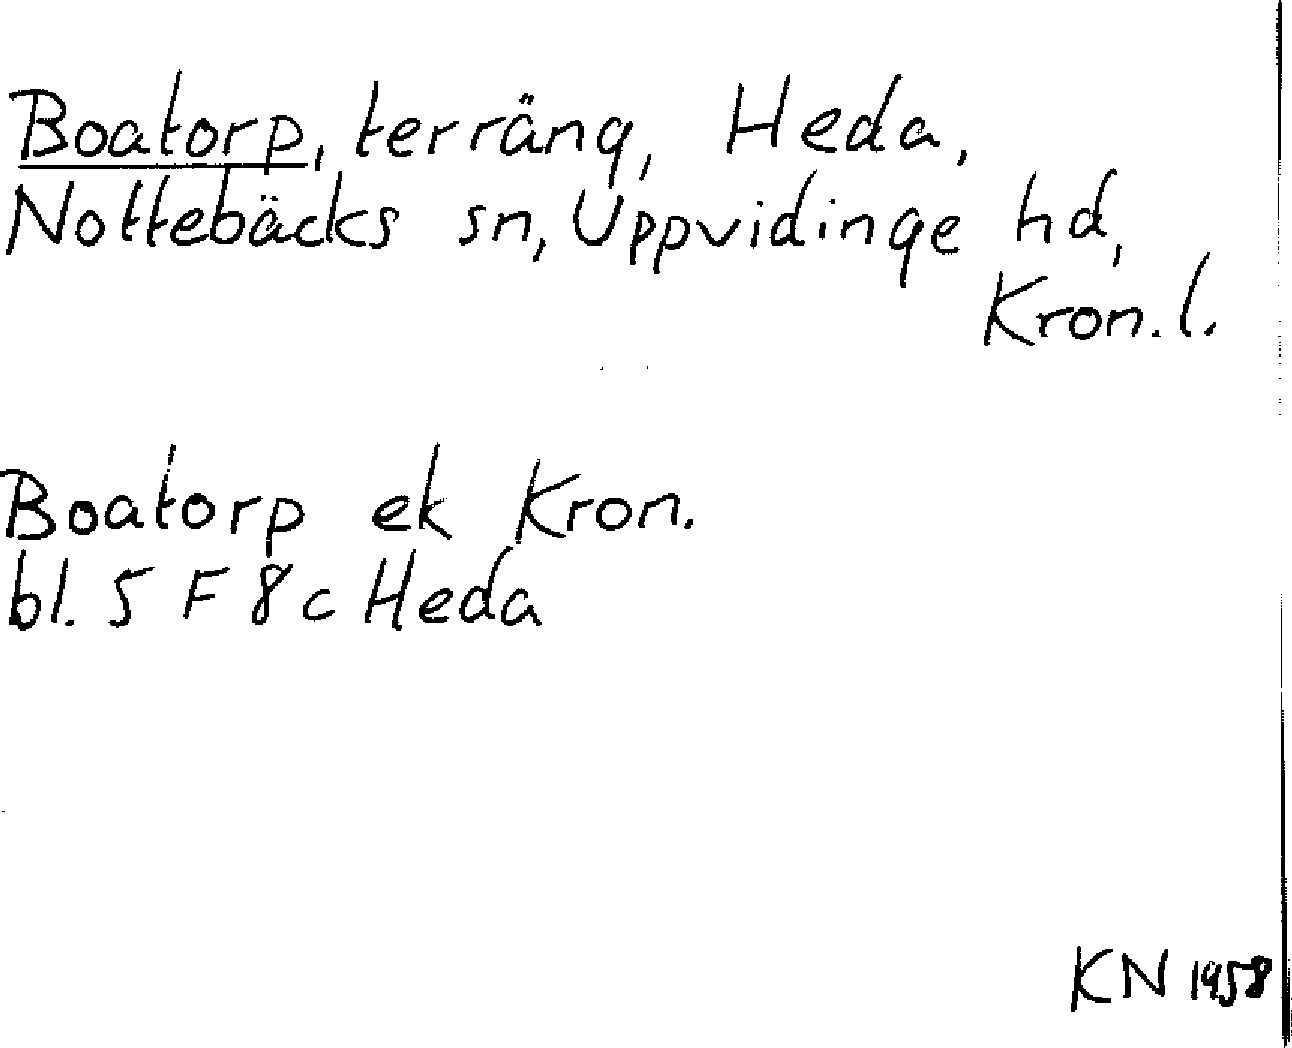 Boatorp, terräng, Heda,
Nottebäcks sn, Uppvidinge hd,
Kron. l.
Boatorp ek Kron.
bl. 5 F 8 c Heda
KN 1958